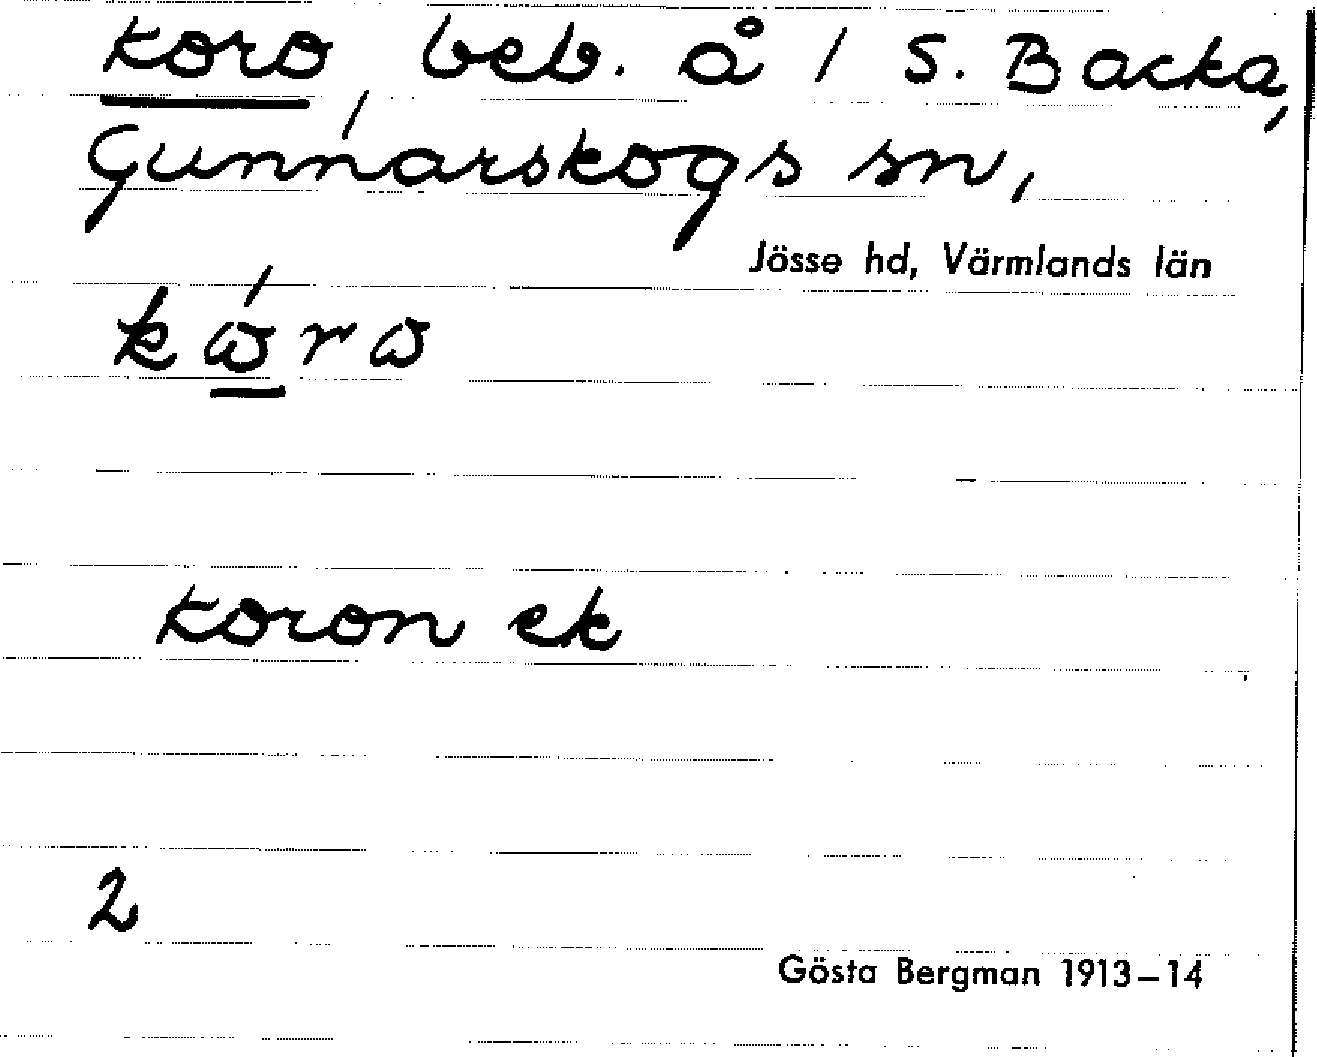 koro, beb. å / S. Backa,
Gunnarskogs sn,
Jösse hd, Värmlands län
kɷ́rɷ
koron ek
2
Gösta Bergman 1913–14